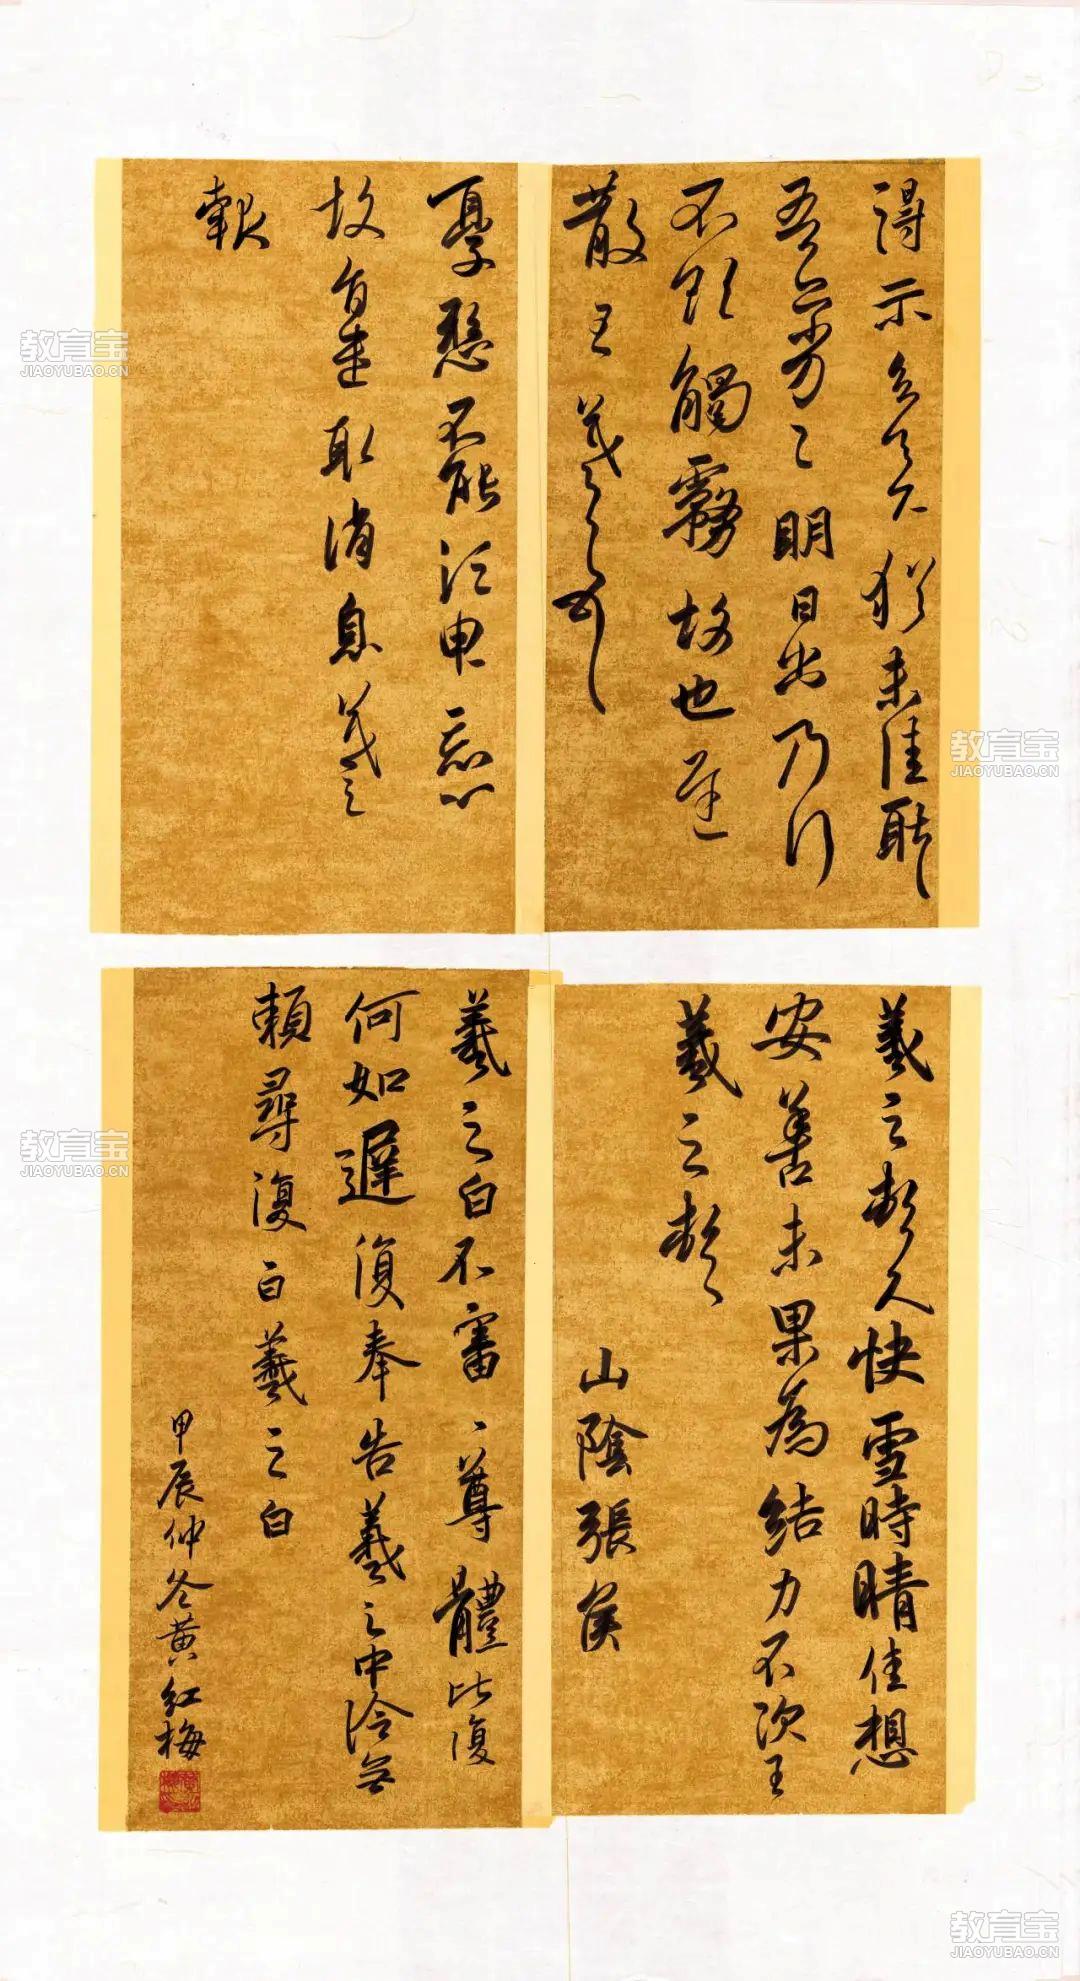 得示知足下犹未佳耿
吾亦劣々明日出乃行
不欲觸霧故也遲
散王羲之頓首
憂懸不能須臾忘心
故旨遣取消息羲之
報
羲之頓首快雪時晴佳想
安善未果為結力不次王
羲之頓首
山陰張侯
羲之白不審、尊體比復
何如遲復奉告羲之中冷無
賴尋復白羲之白
甲辰仲冬黄红梅
教育宝
JIAOYUBAO.CN
教育宝
JIAOYUBAO.CN
教育宝
JIAOYUBAO.CN
教育宝
JIAOYUBAO.CN